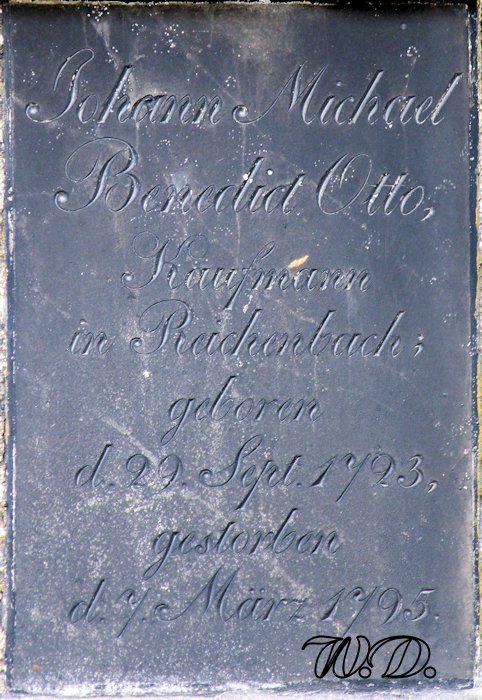 Johann Michael
Benedict Otto,
Kaufmann
in Reichenbach;
geboren
d. 29. Sept. 1723,
gestorben
d. 7. März 1795.
W.D.